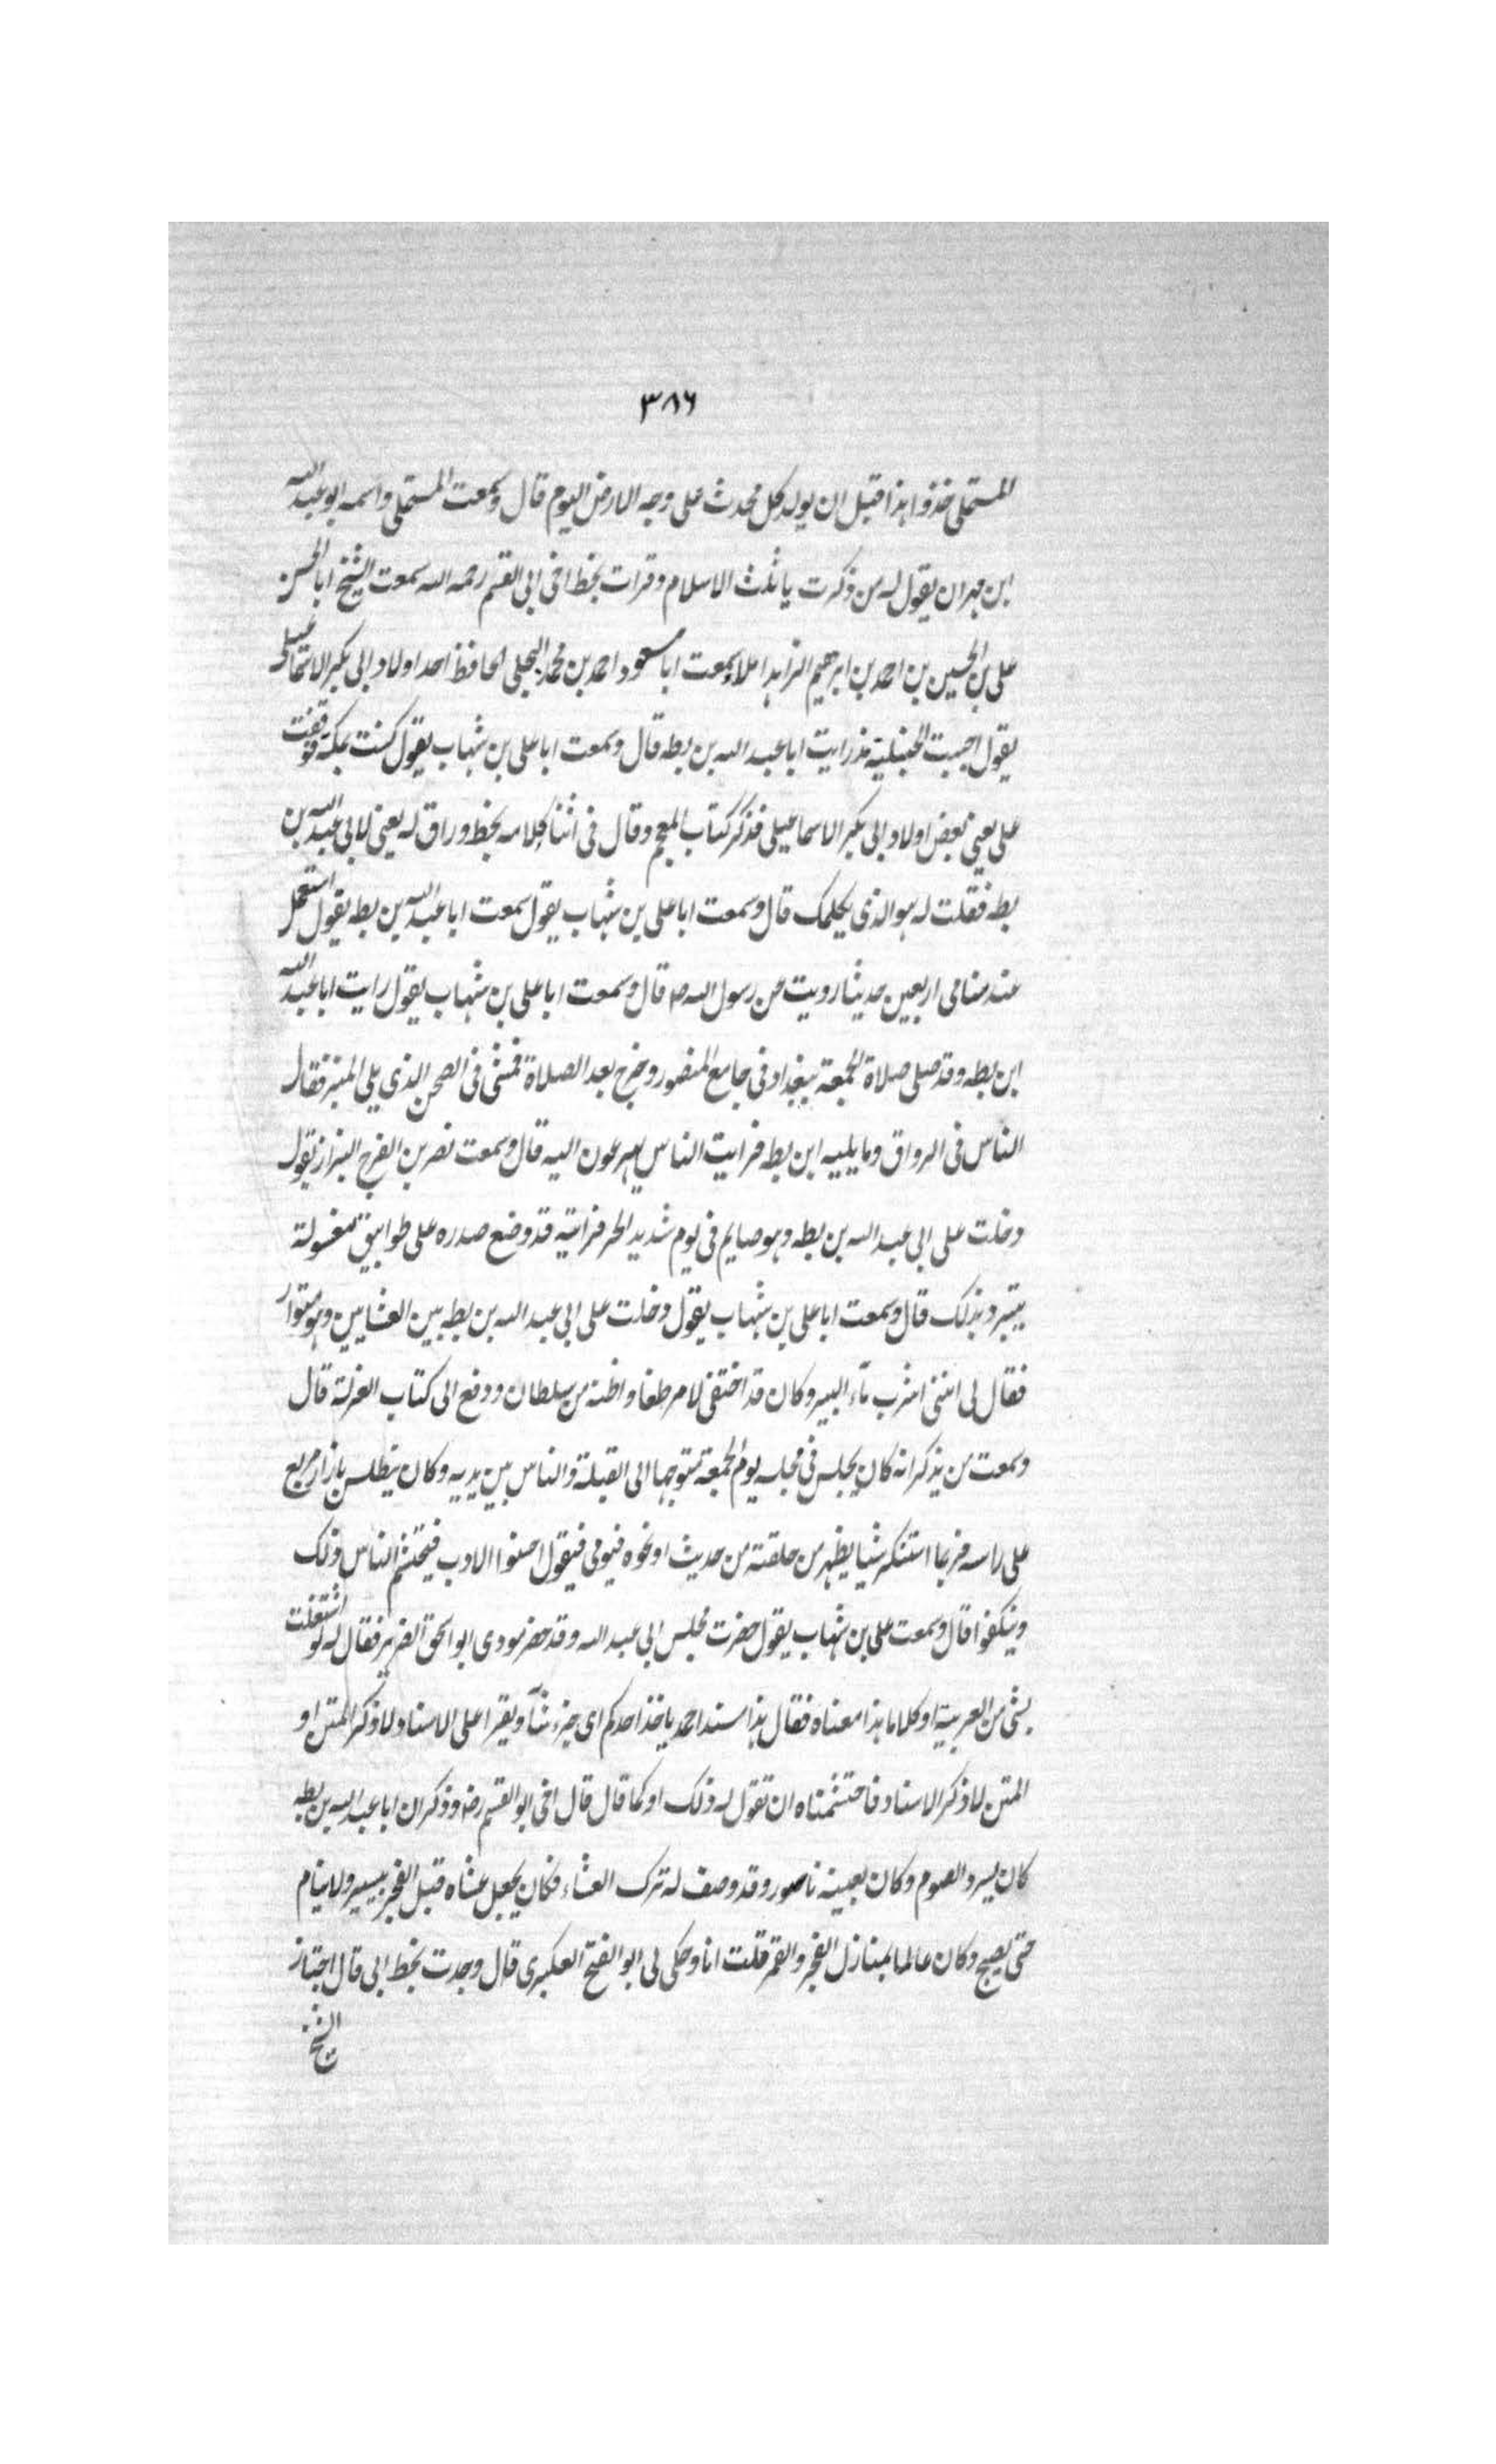 ٣٨٦
المستملى خذوا هذا قبل ان يولد كل محدث على وجه الارض اليوم قال وسمعت المستملى واسمه ابو عبد الله
ابن مهران يقول له من ذكرت يا ثلث الاسلام وقرات بخط اخى ابى القسم رحمه الله سمعت الشيخ ابا الحسن
على بن الحسين بن احمد بن ابرهيم الزاهد املاء سمعت ابا مسعود احمد بن محمد البجلى الحافظ احد اولاد ابى بكر الاسماعيلى
يقول احببت الحنبلية مذ رايت ابا عبد الله بن بطه قال وسمعت ابا على بن شهاب يقول كنت بمكة فوقفت
على يعنى بعض اولاد ابى بكر الاسماعيلى فذكر كتاب المعجم وقال فى اثنا كلامه بخط وراق له يعنى لابى عبد الله بن
بطه فقلت له هو الذى يكلمك قال وسمعت ابا على بن شهاب يقول سمعت ابا عبد الله بن بطه يقول استعمل
عند منامى اربعين حديثا رويت عن رسول الله صم قال وسمعت ابا على بن شهاب يقول رايت ابا عبد الله
ابن بطه وقد صلى صلاة الجمعة ببغداد فى جامع المنصور وخرج بعد الصلاة فمشى فى الصحن الذى يلى المنبر فقال
الناس فى الرواق وما يليه ابن بطه فرايت الناس يهرعون اليه قال وسمعت نصر بن الفرج البزاز يقول
دخلت على ابى عبد الله بن بطه وهو صايم فى يوم شديد الحر فرايته قد وضع صدره على طوابيق مغسولة
يتبرد بذلك قال وسمعت ابا على بن شهاب يقول دخلت على ابى عبد الله بن بطه بين العشايين وهو متوار
فقال لى اننى اشرب ماء البير وكان قد اختفى لامر طغا واظنه من سلطان ودفع الى كتاب العزلة قال
وسمعت من يذكر انه كان يجلس فى مجلسه يوم الجمعة متوجها الى القبلة والناس بين يديه وكان يتطلس بازار مربع
على راسه فربما استنكر شيا يظهر من حلقته من حديث او نحوه فيومى فيقول احسنوا الادب فيحتشم الناس ذلك
وينكفوا قال وسمعت على بن شهاب يقول حضرت مجلس ابى عبد الله وقد حضر مودى ابو اسحق الضرير فقال له لو اشتغلت
بشى من العربية او كلاما هذا معناه فقال هذا مسند احمد ياخذ احدكم اى جزء شآ ويقرا على الاسناد ولا ذكر المتن او
المتن لا ذكر الاسناد فاحتشمناه ان تقول له ذلك او كما قال قال اخى ابو القسم رضه وذكر ان ابا عبد الله بن بطه
كان يسرد الصوم وكان بعينه ناصور وقد وصف له ترك العشاء فكان يجعل عشاه قبل الفجر بيسير ولا ينام
حتى يصبح وكان عالما بمنازل الفجر والقمر قلت انا وحكى لى ابو الفتح العكبرى قال وجدت بخط ابى قال اجتاز
الشيخ